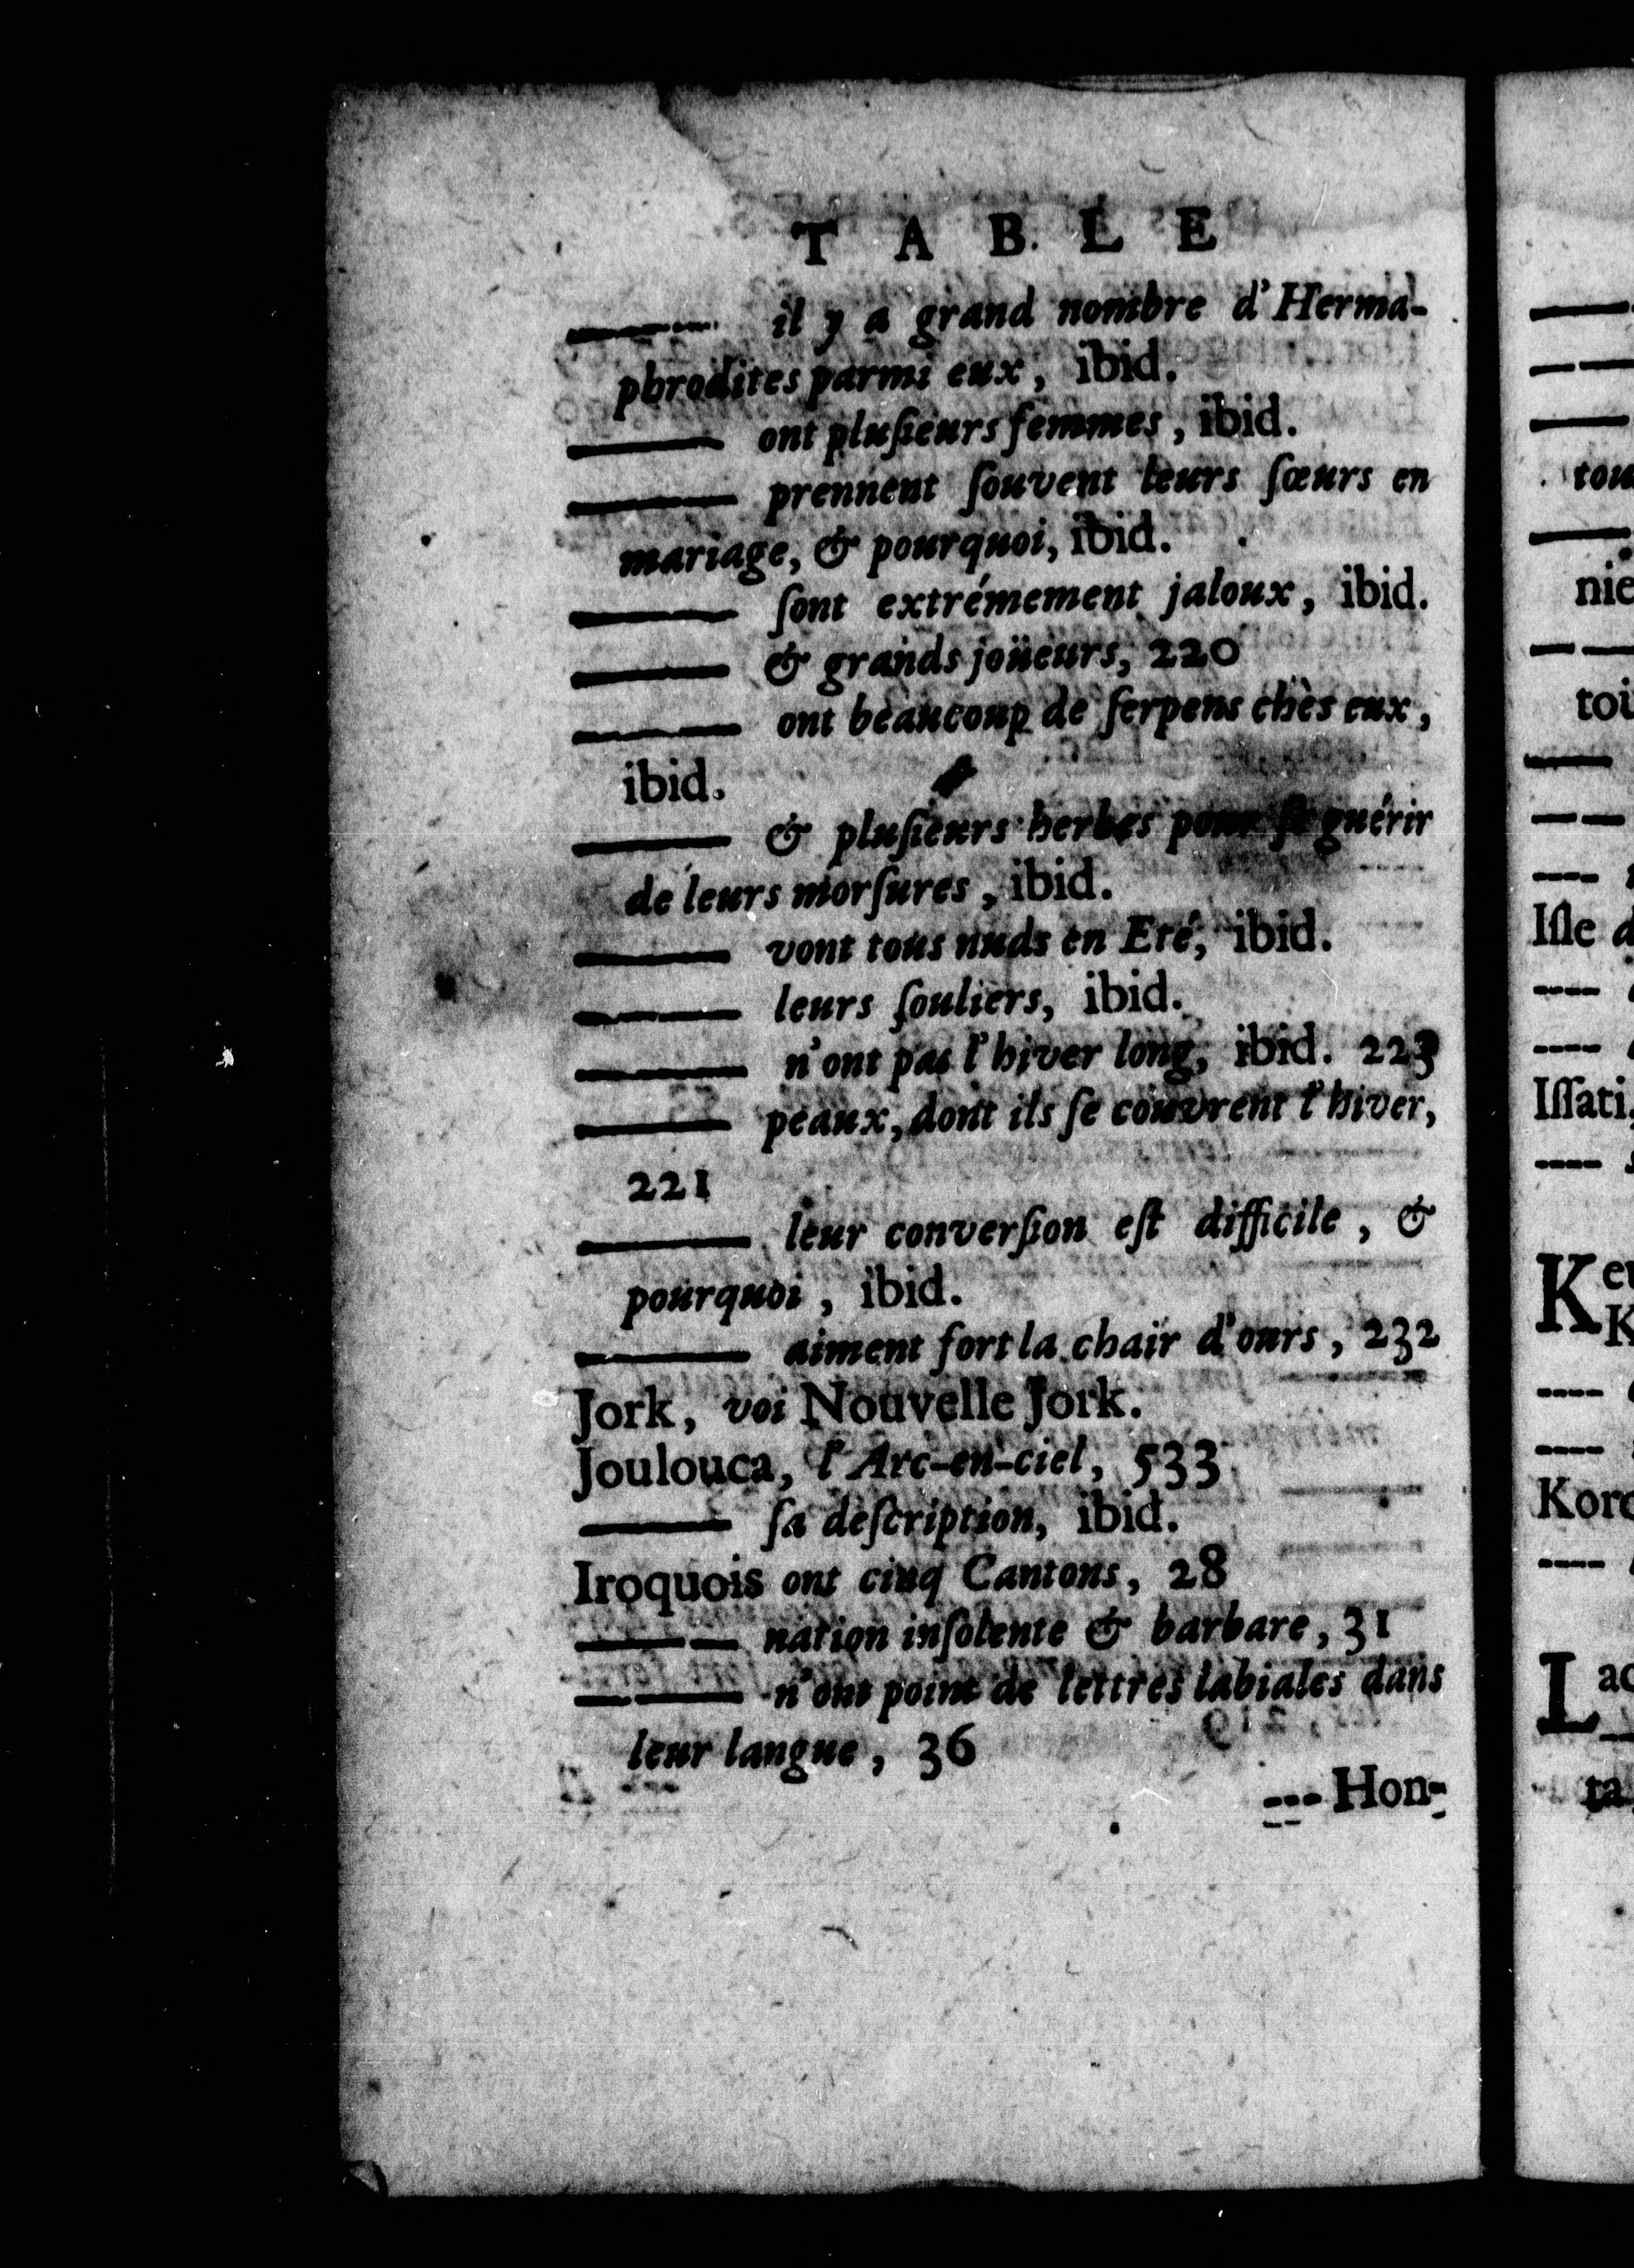 TABLE
——— il y a grand nombre d'Herma-
phrodites parmi eux, ibid.
——— ont pluſieurs femmes, ibid.
——— prennent ſouvent leurs ſœurs en
mariage, & pourquoi, ibid.
——— ſont extrémement jaloux, ibid.
——— & grands joüeurs, 220
——— ont beaucoup de ſerpens chès eux,
ibid.
——— & pluſieurs herbes pour ſe guérir
de leurs morſures, ibid.
——— vont tous nuds en Eté, ibid.
——— leurs ſouliers, ibid.
——— n'ont pas l'hiver long, ibid. 223
——— peaux, dont ils ſe couvrent l'hiver,
221
——— leur converſion eſt difficile, &
pourquoi, ibid.
——— aiment fort la chair d'ours, 232
Jork, voi Nouvelle Jork.
Joulouca, l'Arc-en-ciel, 533
——— ſa deſcription, ibid.
Iroquois ont cinq Cantons, 28
——— nation inſolente & barbare, 31
——— n'ont point de lettres labiales dans
leur langue, 36
--- Hon-
tou
nie
toi
Iſle d
Iſſati,
Keu
K
Koro
Lac
ta